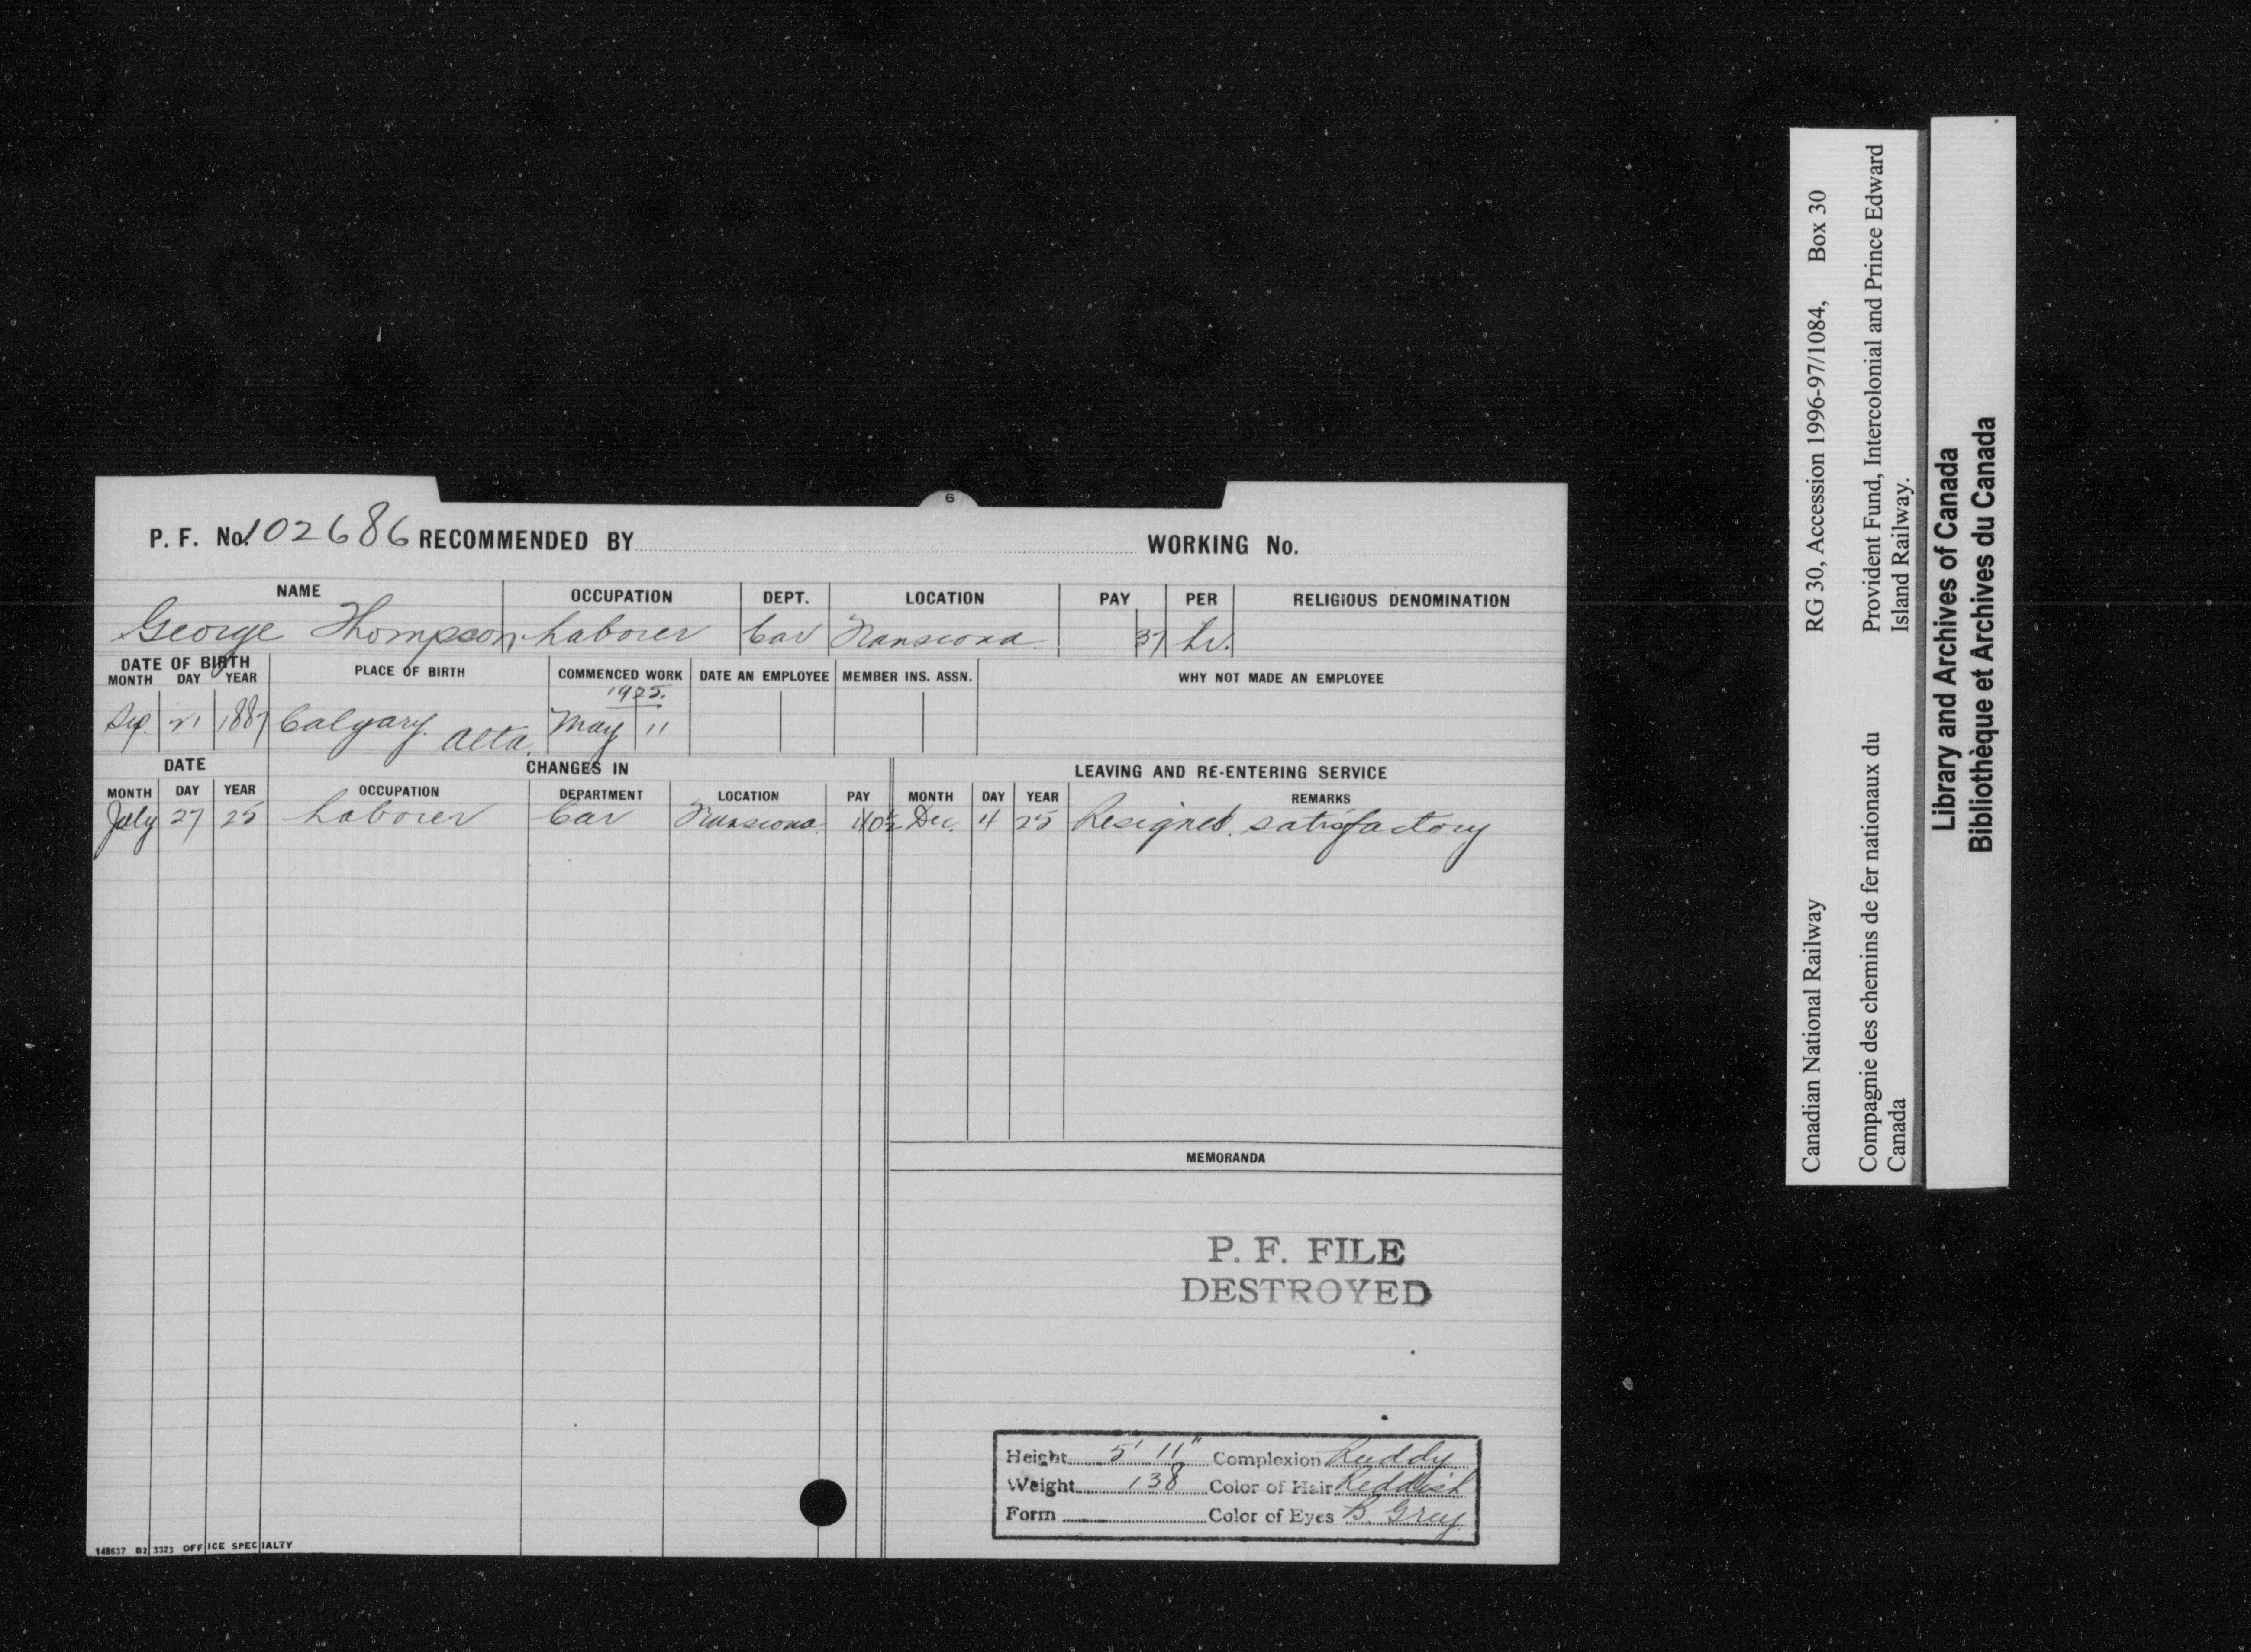 6
P. F. No. 102686 RECOMMENDED BY WORKING No.
NAME OCCUPATION DEPT. LOCATION PAY PER RELIGIOUS DENOMINATION
George Thompson Laborer Car Transcona 37 hr.
DATE OF BIRTH PLACE OF BIRTH COMMENCED WORK DATE AN EMPLOYEE MEMBER INS. ASSN. WHY NOT MADE AN EMPLOYEE
MONTH DAY YEAR
1925.
Sep. 21 1887 Calgary. Alta. May 11
DATE CHANGES IN LEAVING AND RE-ENTERING SERVICE
MONTH DAY YEAR OCCUPATION DEPARTMENT LOCATION PAY MONTH DAY YEAR REMARKS
July 27 25 Laborer Car Transcona 40½ Dec. 4 25 Resigned. satisfactory
MEMORANDA
P. F. FILE
DESTROYED
Height 5' 11" Complexion Ruddy
Weight 138 Color of Hair Reddish
Form Color of Eyes B. Grey
148637 B2 3323 OFFICE SPECIALTY
Canadian National Railway RG 30, Accession 1996-97/1084, Box 30
Compagnie des chemins de fer nationaux du Provident Fund, Intercolonial and Prince Edward
Canada Island Railway.
Library and Archives of Canada
Bibliothèque et Archives du Canada